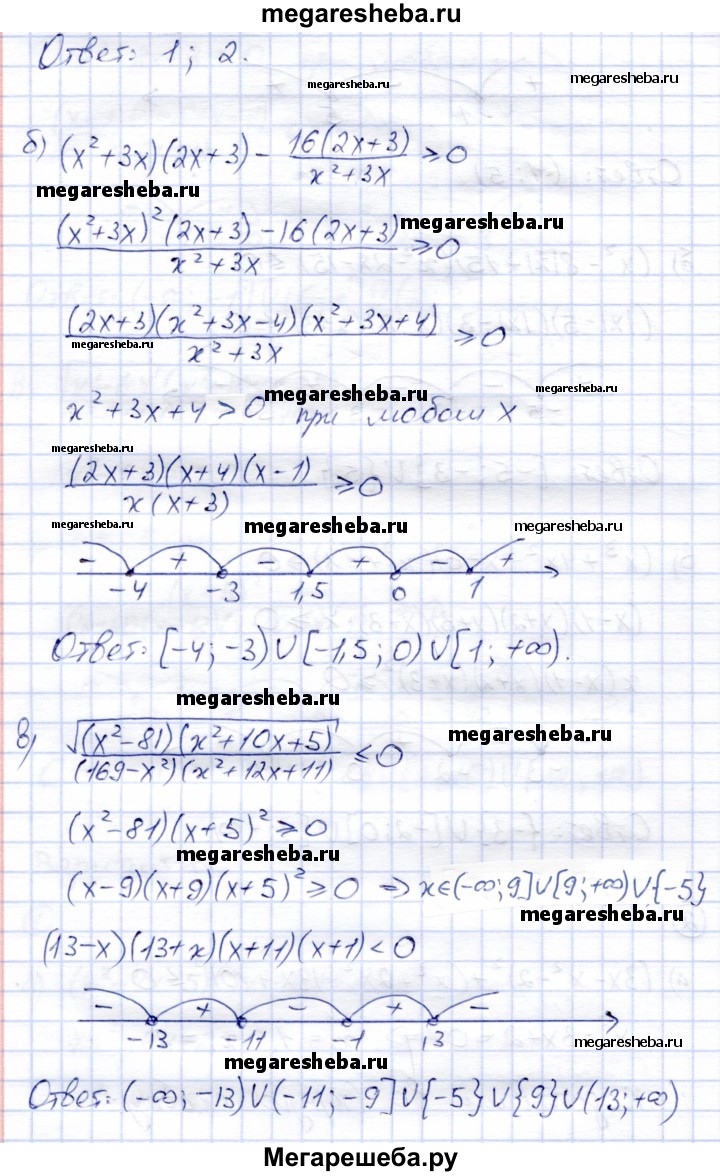 megaresheba.ru
Ответ: 1; 2.
megaresheba.ru
megaresheba.ru
б) (x²+3x)(2x+3) - 16(2x+3)/(x²+3x) ⩾ 0
megaresheba.ru
((x²+3x)²(2x+3) - 16(2x+3))/(x²+3x) ⩾ 0
megaresheba.ru
((2x+3)(x²+3x-4)(x²+3x+4))/(x²+3x) ⩾ 0
megaresheba.ru
megaresheba.ru
megaresheba.ru
x²+3x+4 > 0 при любом x
megaresheba.ru
((2x+3)(x+4)(x-1))/(x(x+3)) ⩾ 0
megaresheba.ru
megaresheba.ru
megaresheba.ru
- + - + - +
-4 -3 1,5 0 1
Ответ: [-4; -3) ∪ [-1,5; 0) ∪ [1; +∞).
megaresheba.ru
в) √((x²-81)(x²+10x+5))/((169-x²)(x²+12x+11)) ⩽ 0
megaresheba.ru
(x²-81)(x+5)² ⩾ 0
megaresheba.ru
(x-9)(x+9)(x+5)² ⩾ 0 ⇒ x∈(-∞; 9] ∪ [9; +∞) ∪ {-5}
megaresheba.ru
(13-x)(13+x)(x+11)(x+1) < 0
- + - + -
-13 -11 -1 13
megaresheba.ru
megaresheba.ru
Ответ: (-∞; -13) ∪ (-11; -9] ∪ {-5} ∪ {9} ∪ (13; +∞)
Мегарешеба.ру